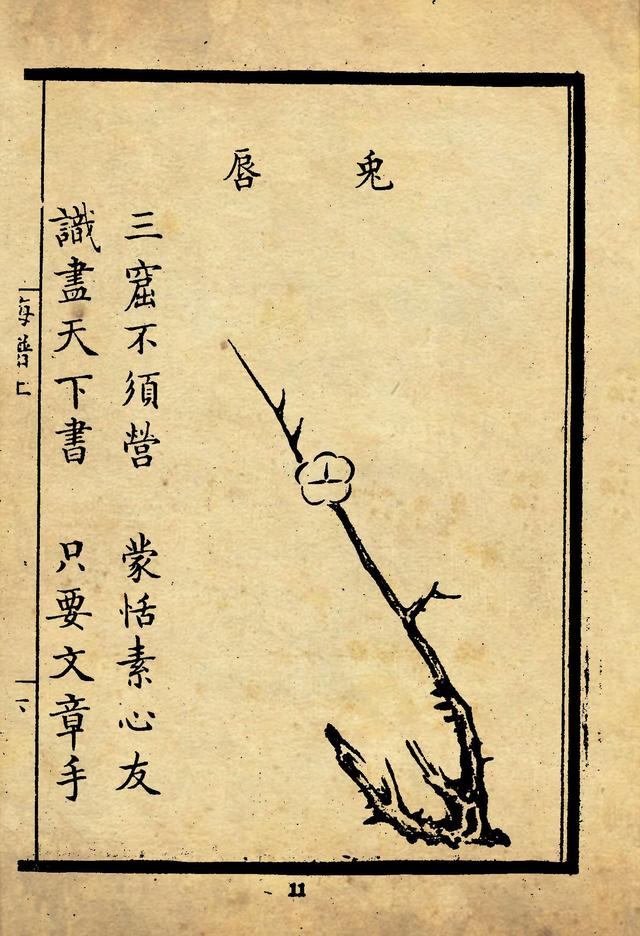 兎脣
三窟不須營 蒙恬素心友
識盡天下書 只要文章手
梅譜上
一下
11